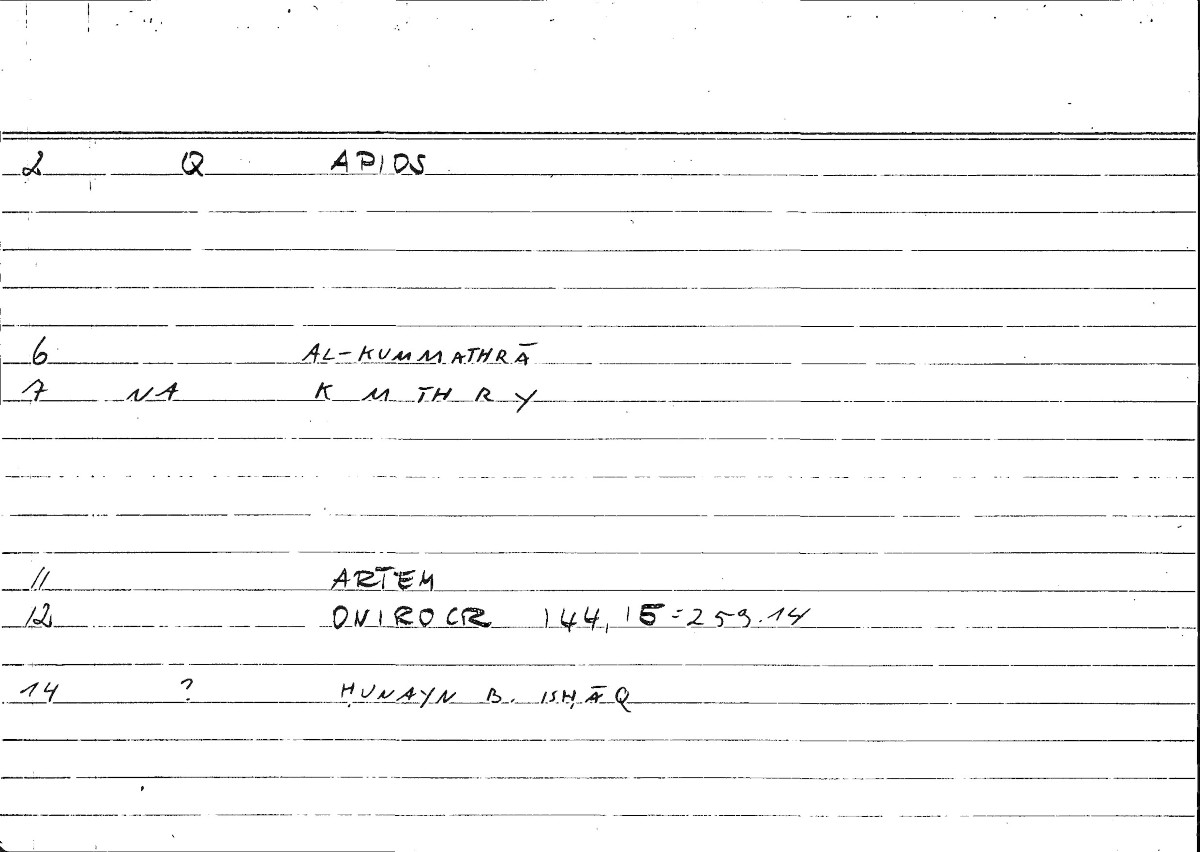 2 Q APIOS
6 AL-KUMMATHRĀ
7 NA K M TH R Y
11 ARTEM
12 ONIROCR 144, 15=259.14
14 ? ḤUNAYN B. ISḤĀQ